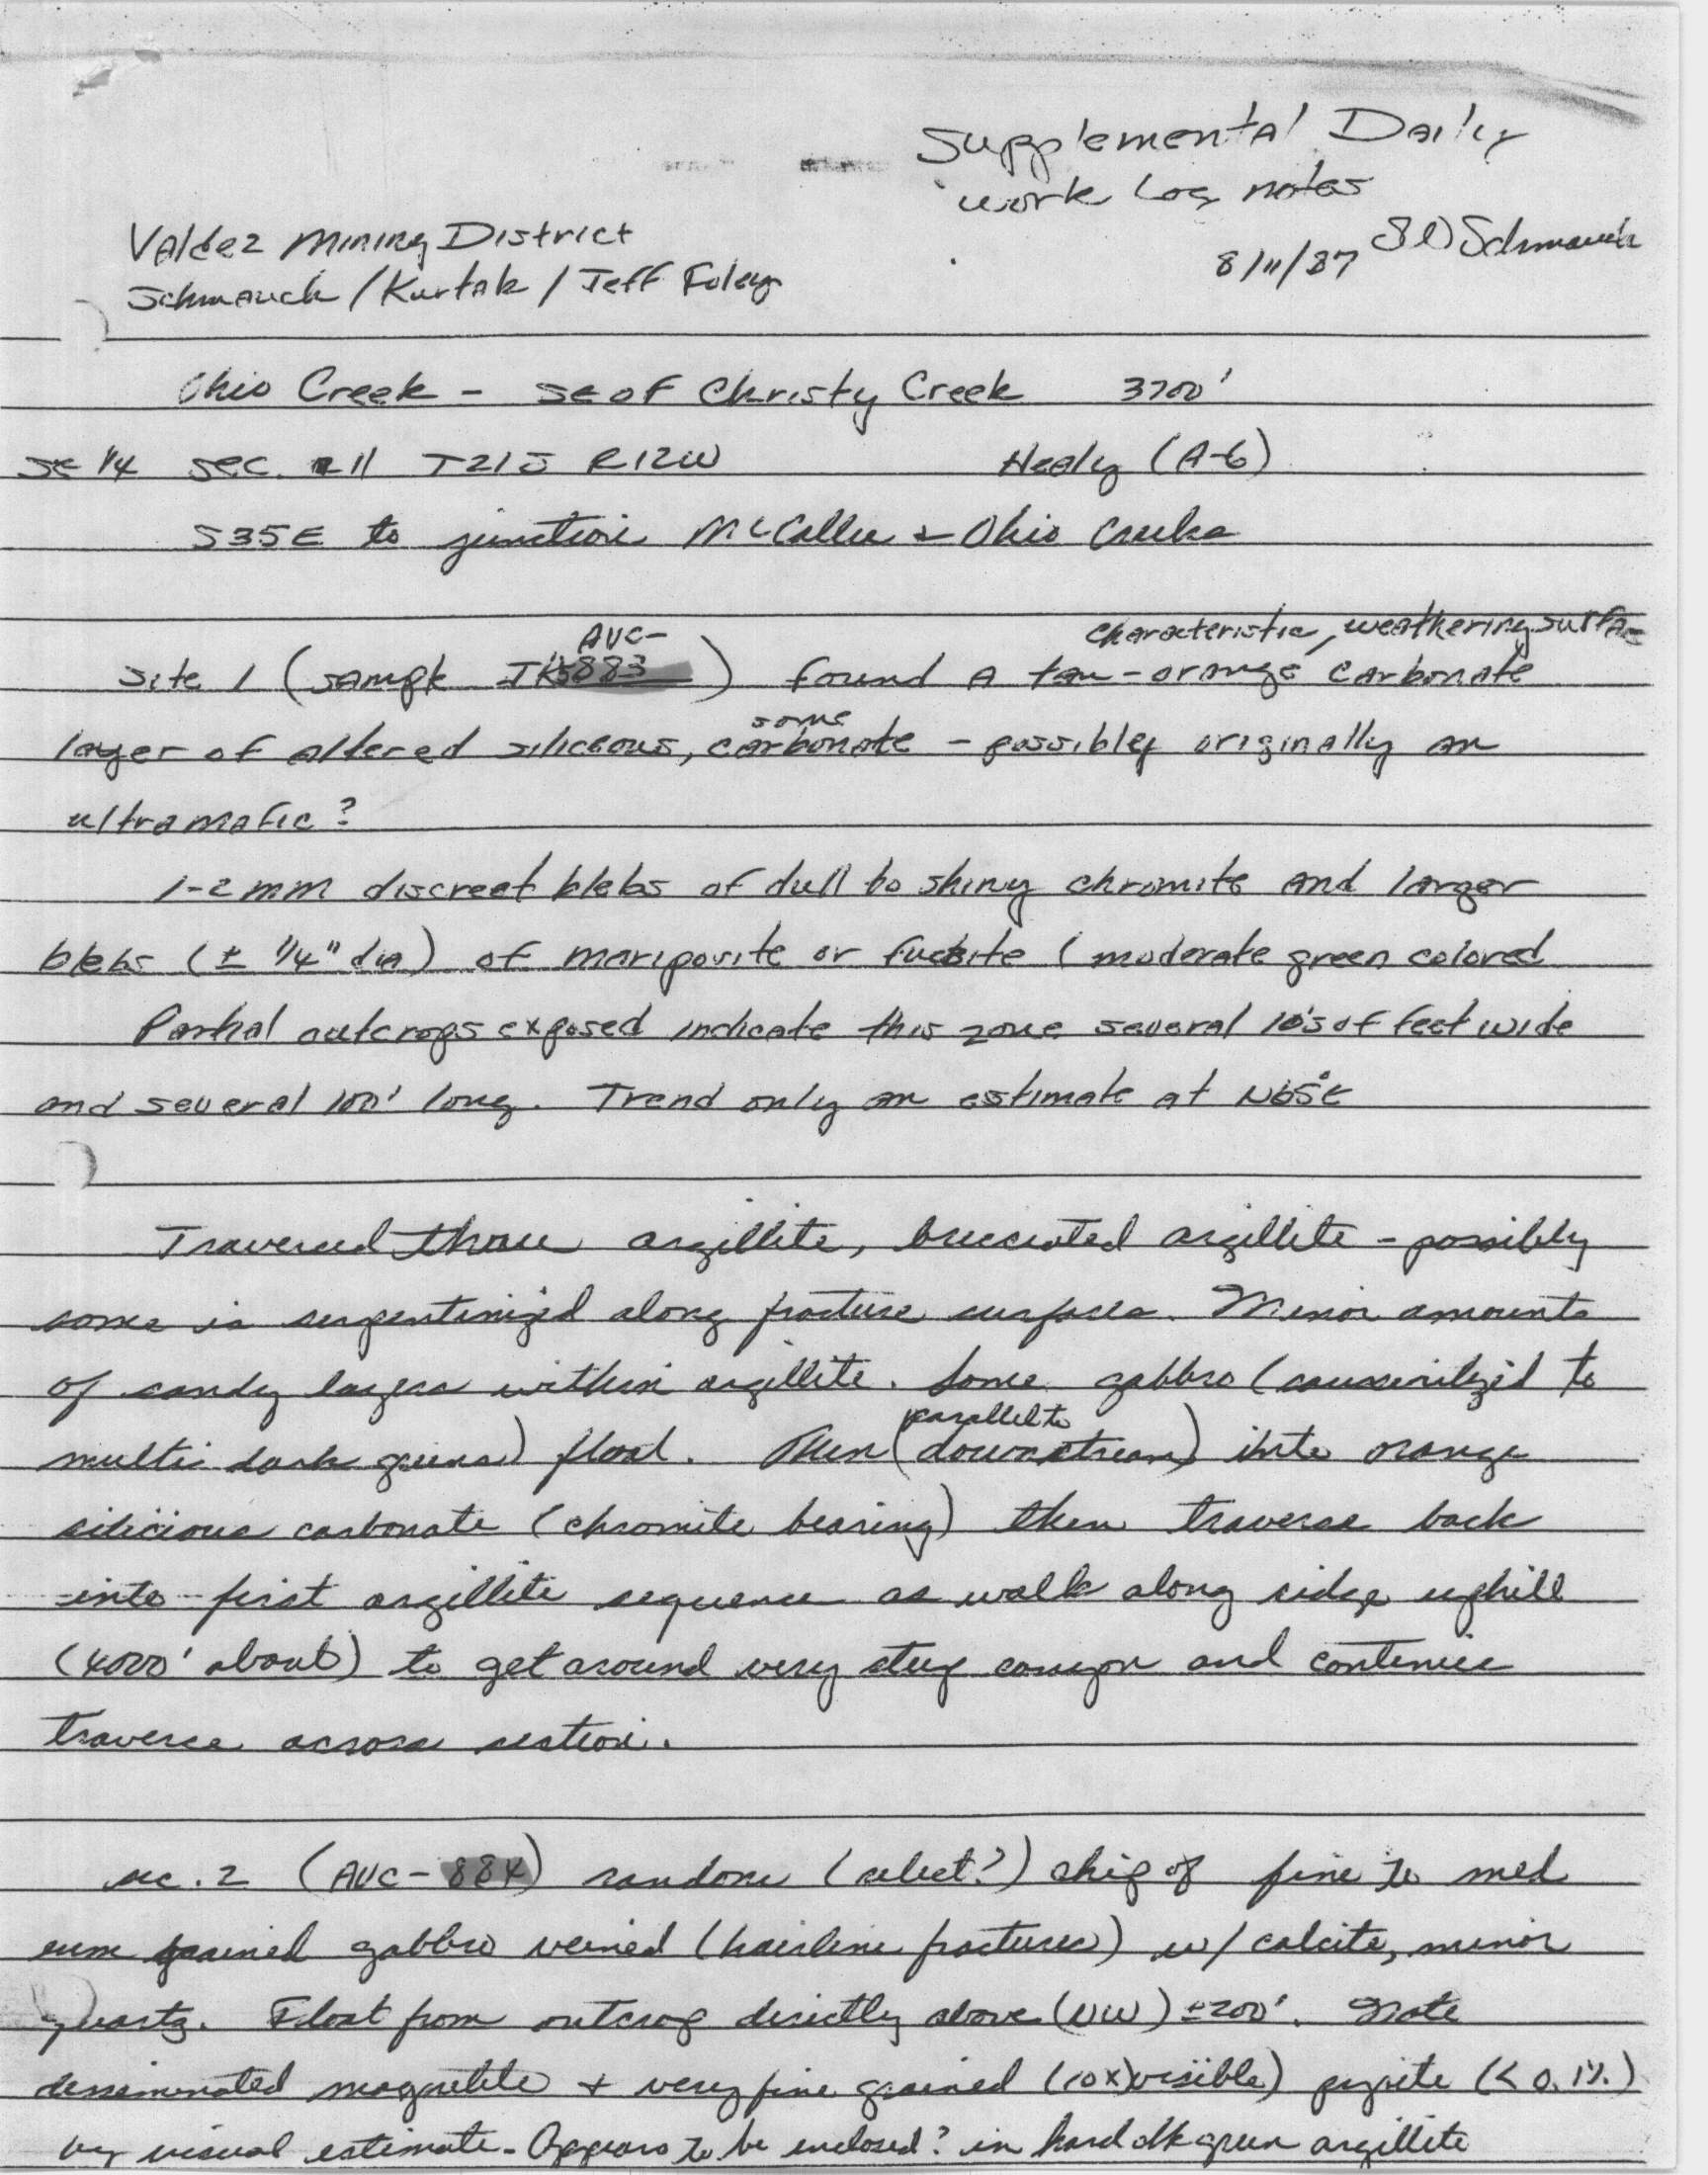 Supplemental Daily
work Log notes
8/11/87 SD Schmauch
Valdez Mining District
Schmauck / Kurtak / Jeff Foley
Ohio Creek - SE of Christy Creek 3700'
SE 1/4 Sec. 11 T21S R12W Healy (A-6)
S35E to junction McCallie + Ohio Creeks
AVC- characteristic, weathering surfa-
Site 1 (sample 883) found a tan-orange carbonate
some
layer of altered siliceous, carbonate - possibley originally an
ultramafic?
1-2 mm discreet blebs of dull to shiny chromite and larger
blebs (± 1/4" dia) of mariposite or fucsite (moderate green colored
Partial outcrops exposed indicate this zone several 10's of feet wide
and several 100' long. Trend only an estimate at N65°E
Traversed thru argillite, brecciated argillite - possibly
some is serpentinized along fracture surfaces. Minor amounts
of sandy layers within argillite. Some gabbro (saussuritized to
parallel to
multi dark greens) float. Then (downstream) into orange
silicious carbonate (chromite bearing) then traverse back
into first argillite sequence as walk along ridge uphill
(4000' about) to get around very steep canyon and continue
traverse across section.
2 (AVC-884) random (select?) chip of fine to med
ium grained gabbro veined (hairline fractures) w/ calcite, minor
quartz. Float from outcrop directly above (NW) ±200'. Note
disseminated magnetite + very fine grained (10x)visible) pyrite (<0.1%)
by visual estimate. Appears to be enclosed? in hard dk green argillite